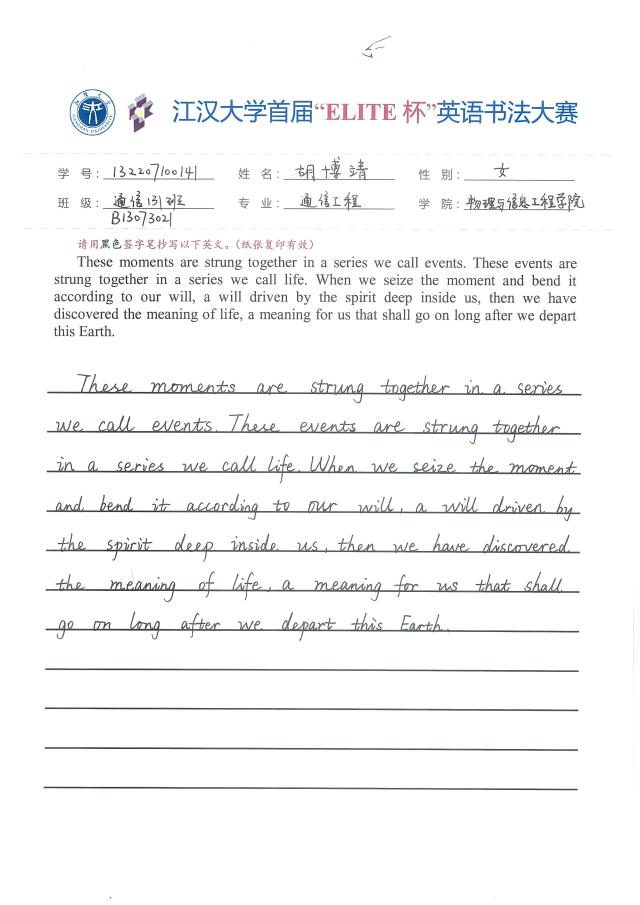 江汉大学首届“ELITE 杯”英语书法大赛
学 号: 132207100141 姓 名: 胡博靖 性 别: 女
班 级: 通信131班 专 业: 通信工程 学 院: 物理与信息工程学院
B13073021
请用黑色签字笔抄写以下英文。(纸张复印有效)
These moments are strung together in a series we call events. These events are
strung together in a series we call life. When we seize the moment and bend it
according to our will, a will driven by the spirit deep inside us, then we have
discovered the meaning of life, a meaning for us that shall go on long after we depart
this Earth.
These moments are strung together in a series
we call events. These events are strung together
in a series we call life. When we seize the moment
and bend it according to our will, a will driven by
the spirit deep inside us, then we have discovered
the meaning of life, a meaning for us that shall
go on long after we depart this Earth.